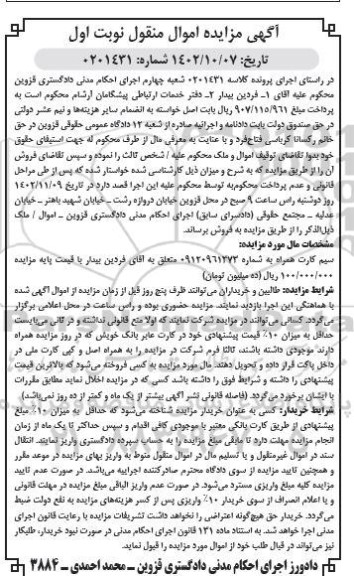 آگهی مزایده اموال منقول نوبت اول
تاریخ: ۱۴۰۲/۱۰/۰۷ شماره: ۰۲۰۱۴۳۱
در راستای اجرای پرونده کلاسه ۰۲۰۱۴۳۱ شعبه چهارم اجرای احکام مدنی دادگستری قزوین
محکوم علیه آقای ۱ـ فردین بیدار ۲ـ دفتر خدمات ارتباطی پیشگامان ارشام محکوم است به
پرداخت مبلغ ۹۰۷/۱۱۵/۹۶۱ ریال بابت اصل خواسته به انضمام سایر هزینه‌ها و نیم عشر دولتی
در حق صندوق دولت بابت دادنامه و اجرائیه صادره از شعبه ۱۲ دادگاه عمومی حقوقی قزوین در حق
خانم رکسانا کرباسی فتاح‌فرد و با عنایت به معرفی مال از طرف محکوم له جهت استیفای حقوق
خود بدوا تقاضای توقیف اموال و ملک محکوم علیه / شخص ثالث را نموده و سپس تقاضای فروش
آن را از طریق مزایده که به شرح و میزان ذیل کارشناسی شده خواستار شده که پس از طی مراحل
قانونی و عدم پرداخت محکوم‌به توسط محکوم علیه این اجرا قصد دارد در تاریخ ۱۴۰۲/۱۱/۰۹
روز دوشنبه راس ساعت ۹ صبح در محل قزوین خیابان دروازه رشت ـ خیابان شهید باهنر ـ خیابان
عدلیه ـ مجتمع حقوقی (دادسرای سابق) اجرای احکام مدنی دادگستری قزوین ـ اموال / ملک
ذیل‌الذکر را از طریق مزایده به فروش برساند.
مشخصات مال مورد مزایده:
سیم کارت همراه به شماره ۰۹۱۲۰۹۶۱۲۷۲ متعلق به آقای فردین بیدار با قیمت پایه مزایده
۱۰۰/۰۰۰/۰۰۰ ریال (ده میلیون تومان)
شرایط مزایده: طالبین و خریداران می‌توانند ظرف پنج روز قبل از زمان مزایده از اموال آگهی شده
با هماهنگی این اجرا بازدید نمایند. مزایده حضوری بوده و راس ساعت در محل اعلامی برگزار
می‌گردد. کسانی می‌توانند در مزایده شرکت نمایند که اولا منع قانونی نداشته و در ثانی می‌بایست
حداقل به میزان ۱۰٪ قیمت پیشنهادی خود در کارت عابر بانک خویش که در روز مزایده همراه
دارند موجودی داشته باشند، ثالثا فرم شرکت در مزایده را به همراه اصل و کپی کارت ملی در
داخل پاکت قرار داده و تحویل دهند. مال مورد مزایده به کسی فروخته می‌شود که بالاترین قیمت
پیشنهادی را داشته و شرایط فوق را داشته باشد کسی که در مزایده اخلال نماید مطابق مقررات
با ایشان برخورد می‌گردد. (فاصله قانونی نشر آگهی بیشتر از یک ماه و کمتر از ده روز نمی‌باشد)
شرایط خریدار: کسی به عنوان خریدار مزایده شناخته می‌شود که حداقل به میزان ۱۰٪ مبلغ
پیشنهادی از طریق کارت بانکی معتبر با موجودی کافی اقدام و سپس حداکثر تا یک ماه از زمان
انجام مزایده مهلت دارد تا مابقی مبلغ مزایده را به حساب سپرده دادگستری واریز نمایند. انتقال
سند در اموال غیرمنقول و یا تسلیم مال در اموال منقول منوط به واریز بهای مزایده در موعد مقرر
و همچنین تایید مزایده از سوی دادگاه محترم صادرکننده اجراییه می‌باشد. در صورت عدم تایید
مزایده کلیه مبلغ واریزی مسترد می‌شود. در صورت عدم واریز الباقی مبلغ مزایده در مهلت قانونی
و یا اعلام انصراف از سوی خریدار ۱۰٪ واریزی پس از کسر هزینه‌های مزایده به نفع دولت ضبط
می‌گردد. خریدار حق هیچ‌گونه اعتراضی را نخواهد داشت تشریفات مزایده با رعایت قانون اجرای
مدنی اجرا خواهد شد. به استناد ماده ۱۳۱ قانون اجرای احکام مدنی در صورت نبود خریدار، طلبکار
نیز می‌تواند در قبال طلب خود از اموال مورد مزایده را قبول نماید.
دادورز اجرای احکام مدنی دادگستری قزوین ـ محمد احمدی ـ ۳۸۸۴